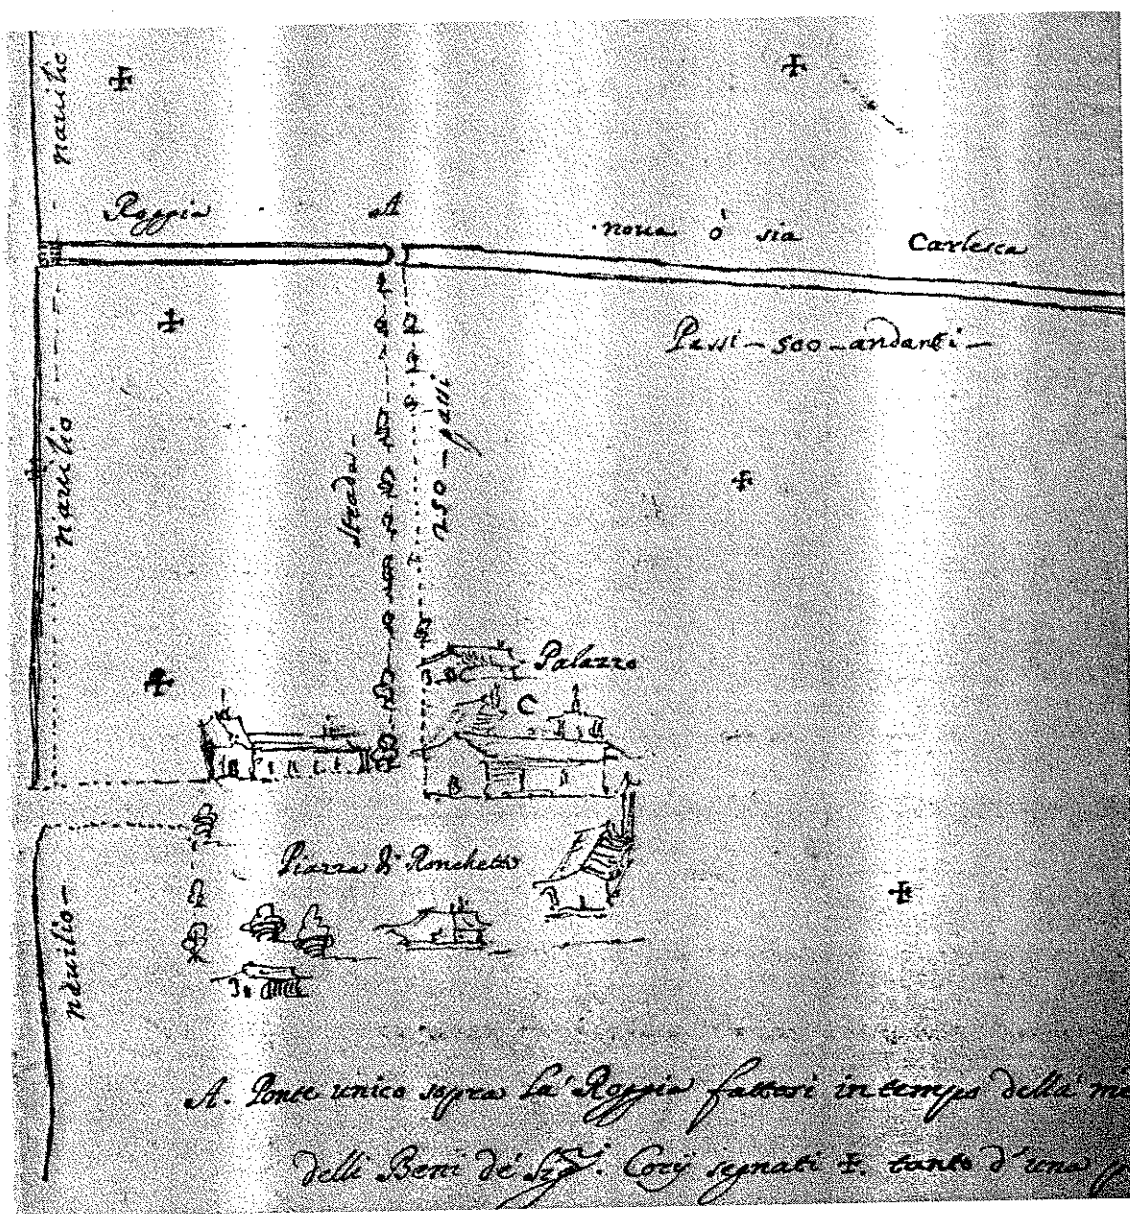 nauilio
Roggia A noua ò sia Carlesca
Passi - 500 - andanti -
nauilio
strada -
250 - passi
Palazzo
C
Piazza di Roncheto
nauilio -
A. Ponte unico sopra la Roggia fattosi in tempo della
delli Beni de Sig.i Corij segnati +. tanto d'una